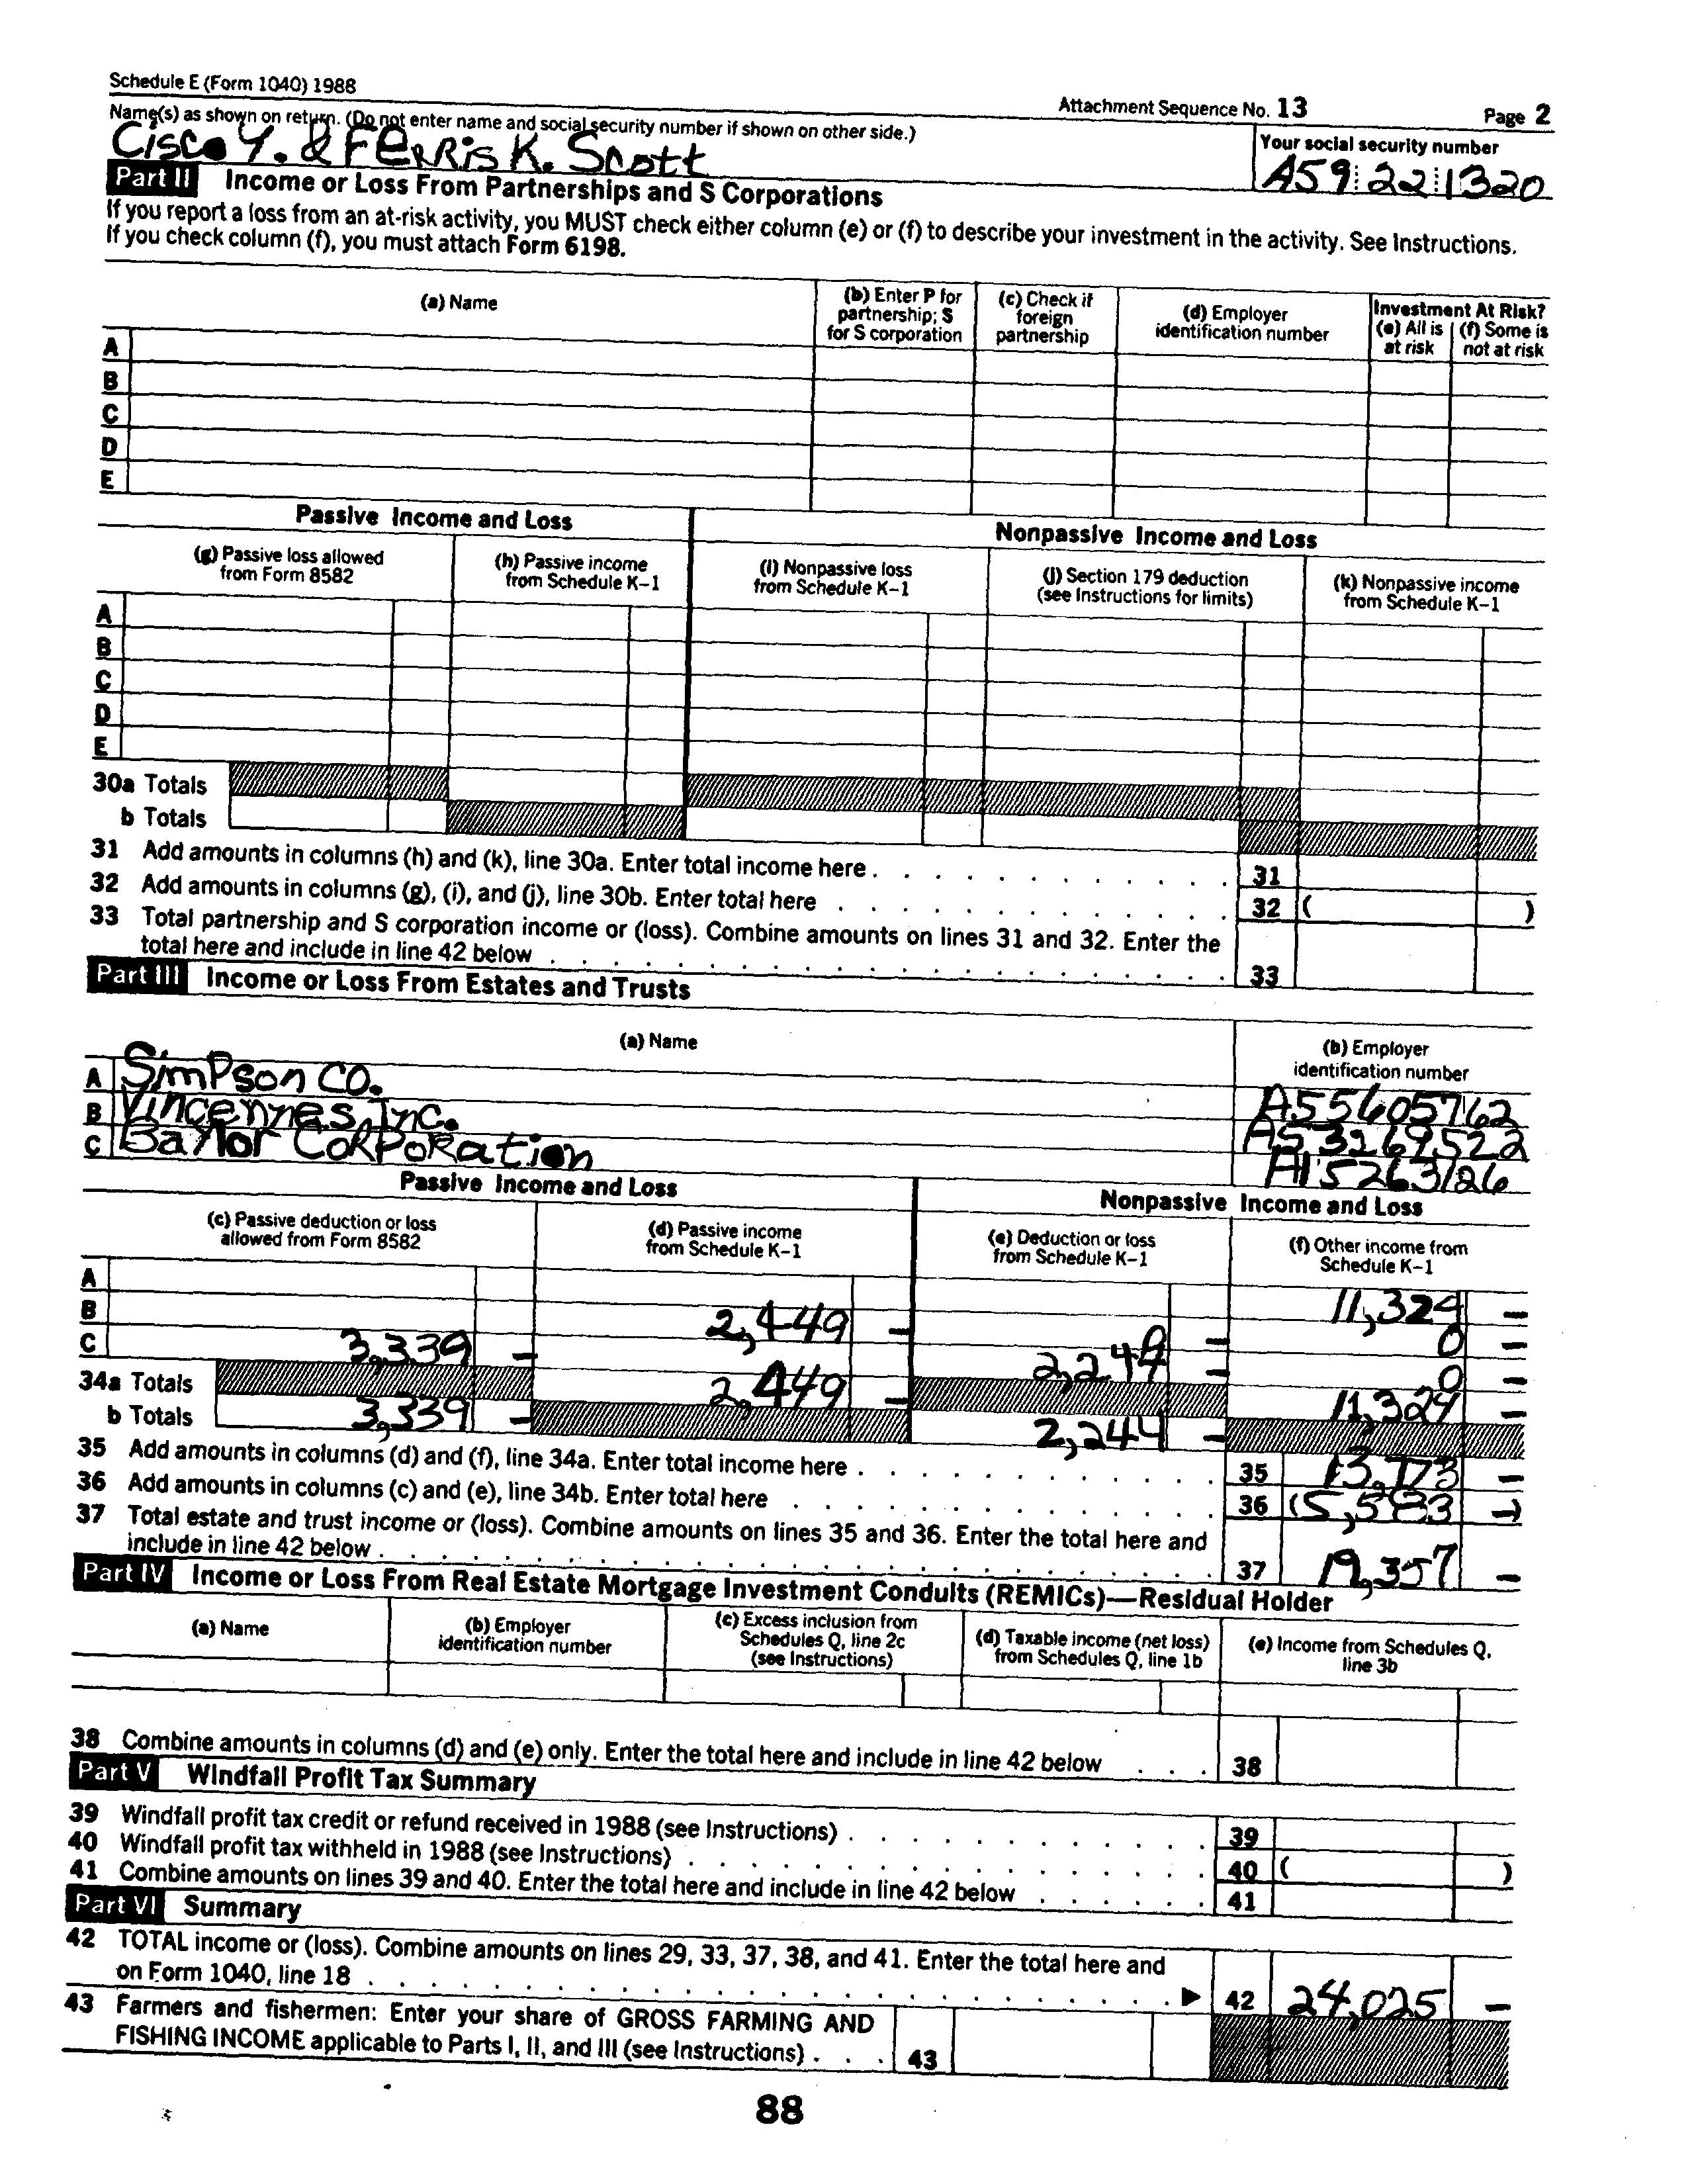 Schedule E (Form 1040) 1988
Attachment Sequence No. 13
Page 2
Name(s) as shown on return. (Do not enter name and social security number if shown on other side.)
Cisco Y. & FERRIS K. Scott
Your social security number
A59 22 1320
Part II Income or Loss From Partnerships and S Corporations
If you report a loss from an at-risk activity, you MUST check either column (e) or (f) to describe your investment in the activity. See Instructions.
If you check column (f), you must attach Form 6198.
(a) Name
(b) Enter P for partnership; S for S corporation
(c) Check if foreign partnership
(d) Employer identification number
Investment At Risk?
(e) All is at risk
(f) Some is not at risk
A
B
C
D
E
Passive Income and Loss
Nonpassive Income and Loss
(g) Passive loss allowed from Form 8582
(h) Passive income from Schedule K-1
(i) Nonpassive loss from Schedule K-1
(j) Section 179 deduction (see Instructions for limits)
(k) Nonpassive income from Schedule K-1
A
B
C
D
E
30a Totals
b Totals
31 Add amounts in columns (h) and (k), line 30a. Enter total income here . . . . . . . . . . . . 31
32 Add amounts in columns (g), (i), and (j), line 30b. Enter total here . . . . . . . . . . . . . 32 ( )
33 Total partnership and S corporation income or (loss). Combine amounts on lines 31 and 32. Enter the
total here and include in line 42 below . . . . . . . . . . . . . . . . . . . . . . 33
Part III Income or Loss From Estates and Trusts
(a) Name
(b) Employer identification number
A SimPson CO. A55605762
B Vincennes Inc. A53269522
C Baylor CoRPoRation A15263126
Passive Income and Loss
Nonpassive Income and Loss
(c) Passive deduction or loss allowed from Form 8582
(d) Passive income from Schedule K-1
(e) Deduction or loss from Schedule K-1
(f) Other income from Schedule K-1
A 11,324 –
B 2,449 – 0 – 0 –
C 3,339 – 2,244 – 0 –
34a Totals 2,449 – 11,324 –
b Totals 3,339 – 2,244 –
35 Add amounts in columns (d) and (f), line 34a. Enter total income here . . . . . . . . . . . . 35 13,773 –
36 Add amounts in columns (c) and (e), line 34b. Enter total here . . . . . . . . . . . . . . 36 (5,583 –)
37 Total estate and trust income or (loss). Combine amounts on lines 35 and 36. Enter the total here and
include in line 42 below . . . . . . . . . . . . . . . . . . . . . . . . . . . 37 19,357 –
Part IV Income or Loss From Real Estate Mortgage Investment Conduits (REMICs)—Residual Holder
(a) Name
(b) Employer identification number
(c) Excess inclusion from Schedules Q, line 2c (see Instructions)
(d) Taxable income (net loss) from Schedules Q, line 1b
(e) Income from Schedules Q, line 3b
38 Combine amounts in columns (d) and (e) only. Enter the total here and include in line 42 below . . . 38
Part V Windfall Profit Tax Summary
39 Windfall profit tax credit or refund received in 1988 (see Instructions) . . . . . . . . . . . . 39
40 Windfall profit tax withheld in 1988 (see Instructions) . . . . . . . . . . . . . . . . . 40 ( )
41 Combine amounts on lines 39 and 40. Enter the total here and include in line 42 below . . . . . . 41
Part VI Summary
42 TOTAL income or (loss). Combine amounts on lines 29, 33, 37, 38, and 41. Enter the total here and
on Form 1040, line 18 . . . . . . . . . . . . . . . . . . . . . . . . . . ▶ 42 24,025 –
43 Farmers and fishermen: Enter your share of GROSS FARMING AND
FISHING INCOME applicable to Parts I, II, and III (see Instructions) . . . . 43
88